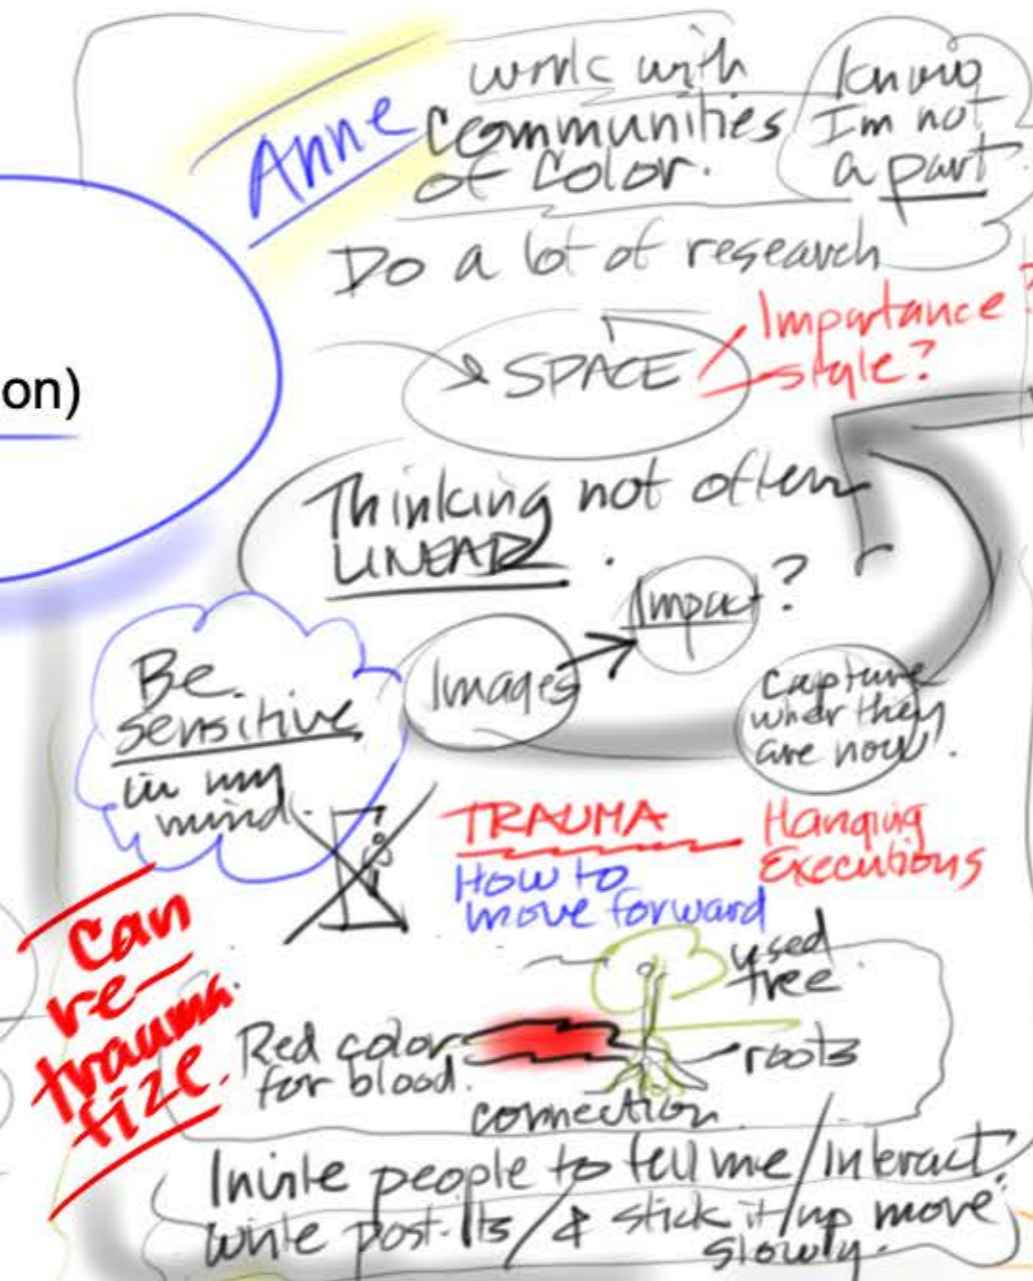 Anne
work with
Communities
of Color.
I know
I'm not
a part
Do a lot of research
SPACE
Importance
style?
on)
Thinking not often
LINEAR
Images
Impact?
Capture
wher they
are now.
Be
sensitive
in my
mind.
TRAUMA
How to
move forward
Hanging
Executions
Can
re-
trauma
tize.
used
tree
Red color
for blood.
roots
connection
Invite people to tell me/interact
write post-Its/& stick it/up move
slowly.